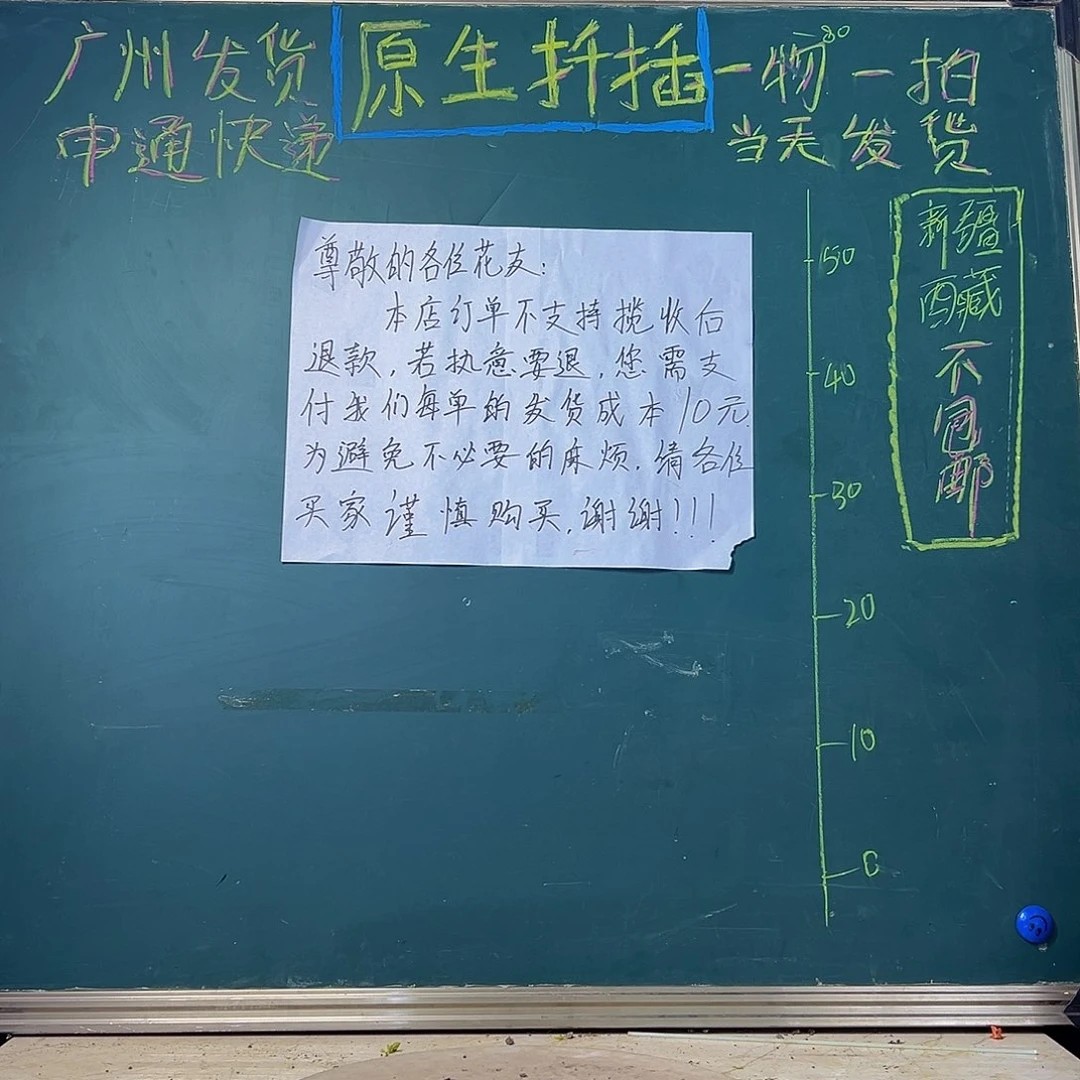 广州发货
申通快递
原生扦插
一物一拍
当天发货
新疆
西藏
不包邮
尊敬的各位花友:
本店订单不支持揽收后
退款,若执意要退,您需支
付我们每单的发货成本10元.
为避免不必要的麻烦.请各位
买家谨慎购买,谢谢!!!
50
40
30
20
10
0